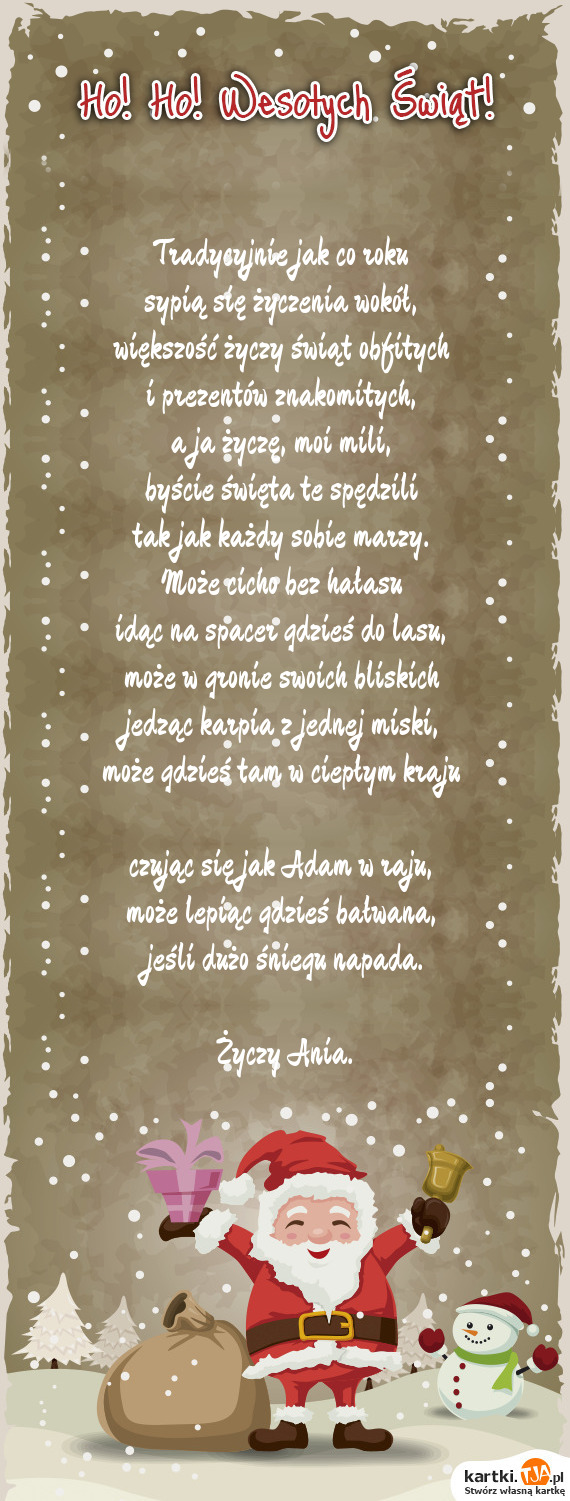 Ho! Ho! Wesołych Świąt!
Tradycyjnie jak co roku
sypią się życzenia wokół,
większość życzy świąt obfitych
i prezentów znakomitych,
a ja życzę, moi mili,
byście święta te spędzili
tak jak każdy sobie marzy.
Może cicho bez hałasu
idąc na spacer gdzieś do lasu,
może w gronie swoich bliskich
jedząc karpia z jednej miski,
może gdzieś tam w ciepłym kraju
czując się jak Adam w raju,
może lepiąc gdzieś bałwana,
jeśli dużo śniegu napada.
Życzy Ania.
kartki.TJA.pl
Stwórz własną kartkę